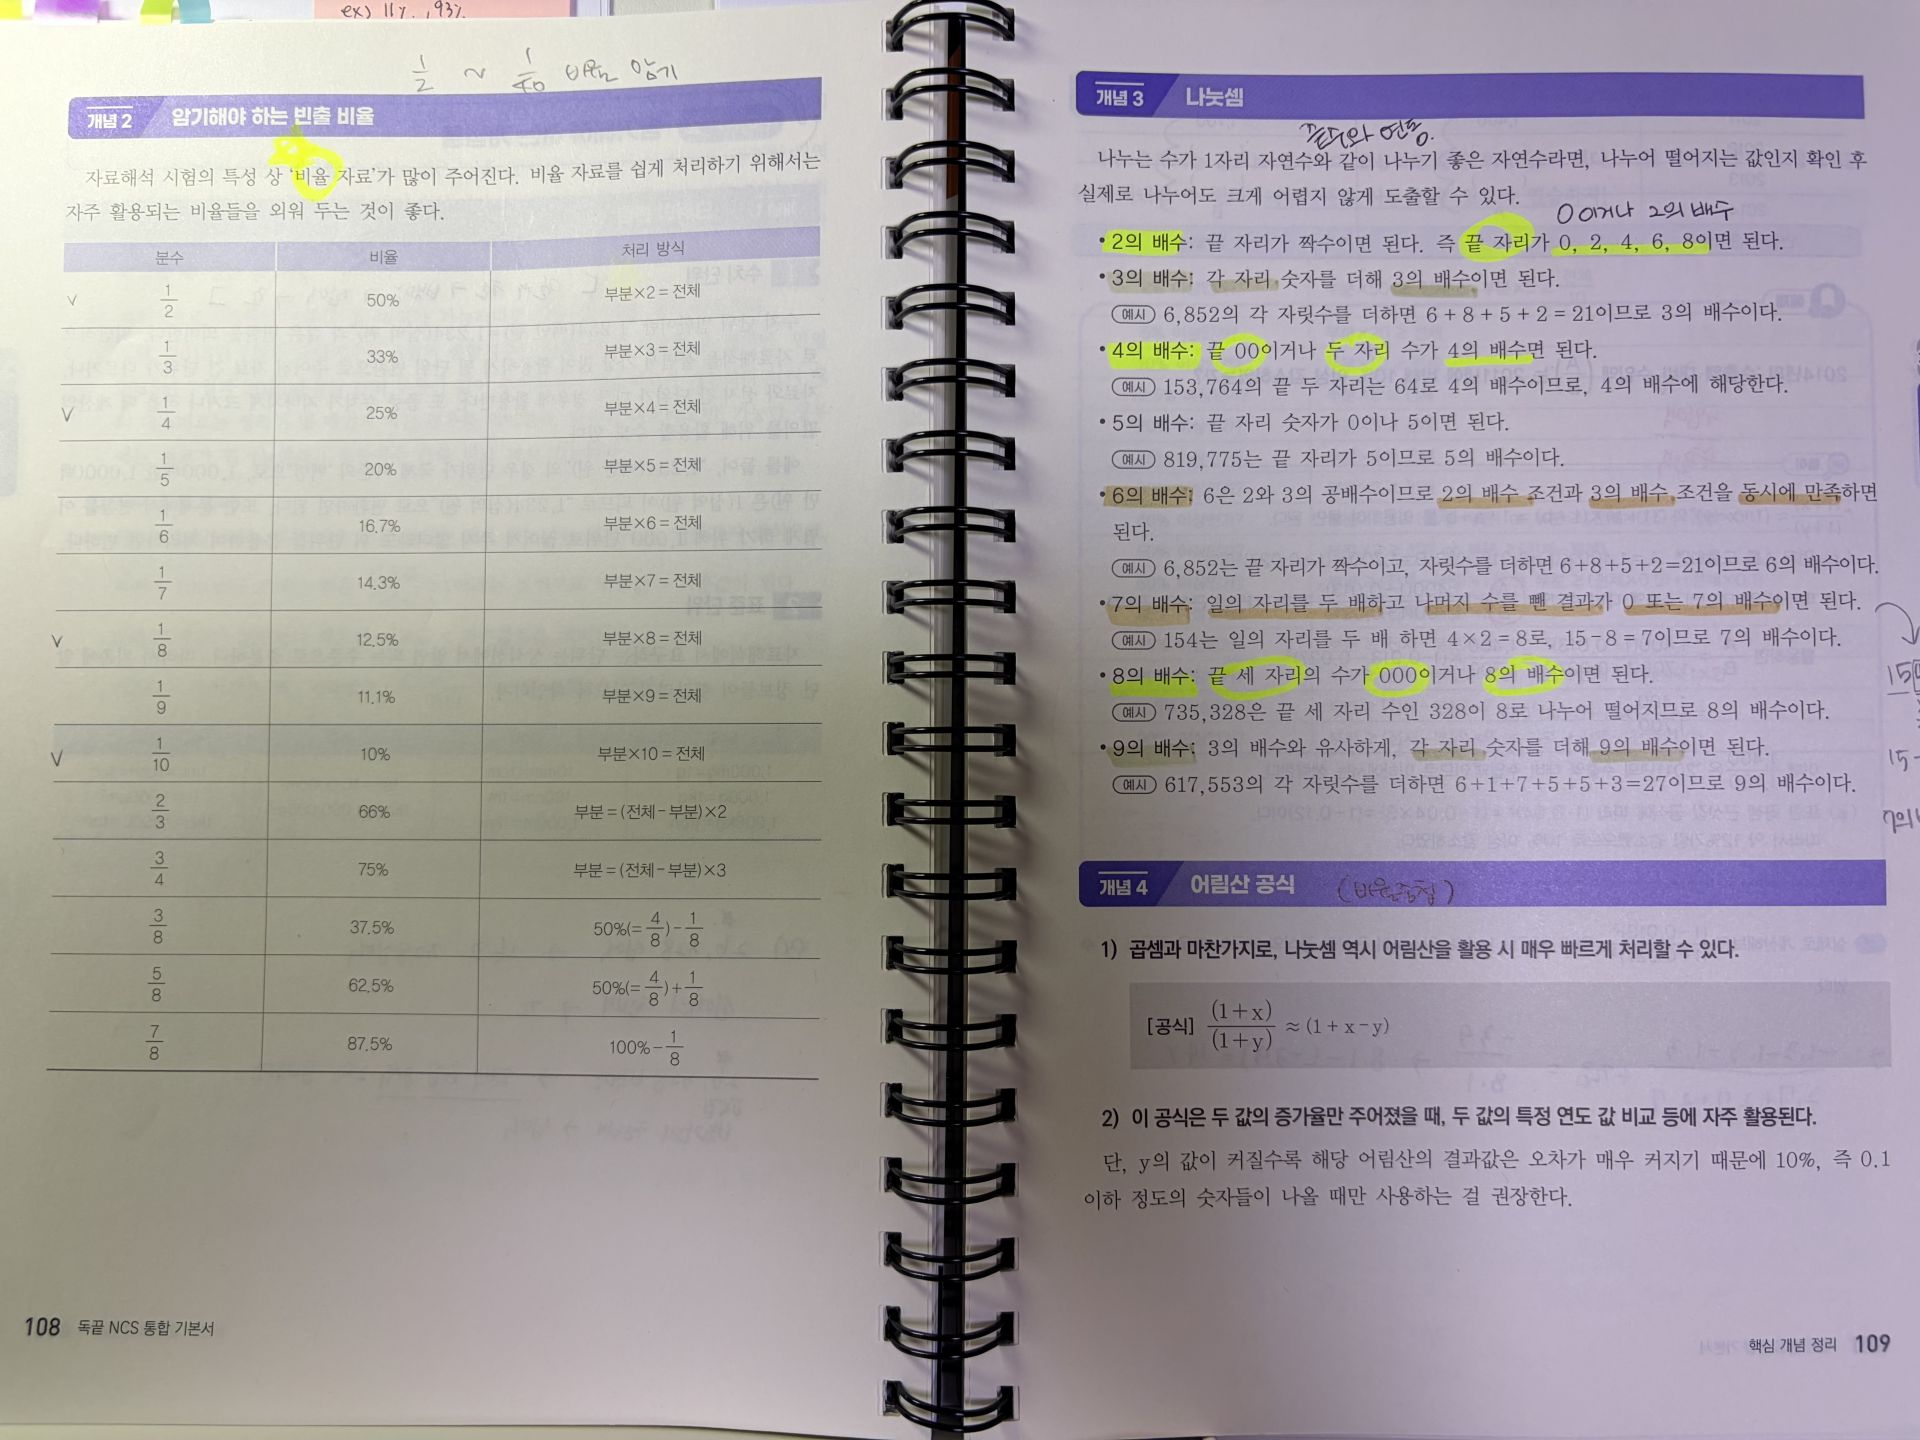 ex) 11% , 93%
1/2 ~ 1/40 비율 암기
개념 2 암기해야 하는 빈출 비율
자료해석 시험의 특성 상 ‘비율 자료’가 많이 주어진다. 비율 자료를 쉽게 처리하기 위해서는
자주 활용되는 비율들을 외워 두는 것이 좋다.
분수 비율 처리 방식
∨ 1/2 50% 부분×2 = 전체
1/3 33% 부분×3 = 전체
∨ 1/4 25% 부분×4 = 전체
1/5 20% 부분×5 = 전체
1/6 16.7% 부분×6 = 전체
1/7 14.3% 부분×7 = 전체
∨ 1/8 12.5% 부분×8 = 전체
1/9 11.1% 부분×9 = 전체
∨ 1/10 10% 부분×10 = 전체
2/3 66% 부분 = (전체 - 부분)×2
3/4 75% 부분 = (전체 - 부분)×3
3/8 37.5% 50%(= 4/8) - 1/8
5/8 62.5% 50%(= 4/8) + 1/8
7/8 87.5% 100% - 1/8
108 독끝 NCS 통합 기본서
개념 3 나눗셈
끝수와 연동.
나누는 수가 1자리 자연수와 같이 나누기 좋은 자연수라면, 나누어 떨어지는 값인지 확인 후
실제로 나누어도 크게 어렵지 않게 도출할 수 있다.
0이거나 2의 배수
• 2의 배수: 끝 자리가 짝수이면 된다. 즉 끝 자리가 0, 2, 4, 6, 8이면 된다.
• 3의 배수: 각 자리 숫자를 더해 3의 배수이면 된다.
예시 6,852의 각 자릿수를 더하면 6 + 8 + 5 + 2 = 21이므로 3의 배수이다.
• 4의 배수: 끝 00이거나 두 자리 수가 4의 배수면 된다.
예시 153,764의 끝 두 자리는 64로 4의 배수이므로, 4의 배수에 해당한다.
• 5의 배수: 끝 자리 숫자가 0이나 5이면 된다.
예시 819,775는 끝 자리가 5이므로 5의 배수이다.
• 6의 배수: 6은 2와 3의 공배수이므로 2의 배수 조건과 3의 배수 조건을 동시에 만족하면
된다.
예시 6,852는 끝 자리가 짝수이고, 자릿수를 더하면 6+8+5+2=21이므로 6의 배수이다.
• 7의 배수: 일의 자리를 두 배하고 나머지 수를 뺀 결과가 0 또는 7의 배수이면 된다.
예시 154는 일의 자리를 두 배 하면 4×2 = 8로, 15 - 8 = 7이므로 7의 배수이다.
• 8의 배수: 끝 세 자리의 수가 000이거나 8의 배수이면 된다.
예시 735,328은 끝 세 자리 수인 328이 8로 나누어 떨어지므로 8의 배수이다.
• 9의 배수: 3의 배수와 유사하게, 각 자리 숫자를 더해 9의 배수이면 된다.
예시 617,553의 각 자릿수를 더하면 6+1+7+5+5+3=27이므로 9의 배수이다.
15
15-
7의
개념 4 어림산 공식 (비율증첩)
1) 곱셈과 마찬가지로, 나눗셈 역시 어림산을 활용 시 매우 빠르게 처리할 수 있다.
[공식] (1+x)/(1+y) ≈ (1 + x - y)
2) 이 공식은 두 값의 증가율만 주어졌을 때, 두 값의 특정 연도 값 비교 등에 자주 활용된다.
단, y의 값이 커질수록 해당 어림산의 결과값은 오차가 매우 커지기 때문에 10%, 즉 0.1
이하 정도의 숫자들이 나올 때만 사용하는 걸 권장한다.
핵심 개념 정리 109